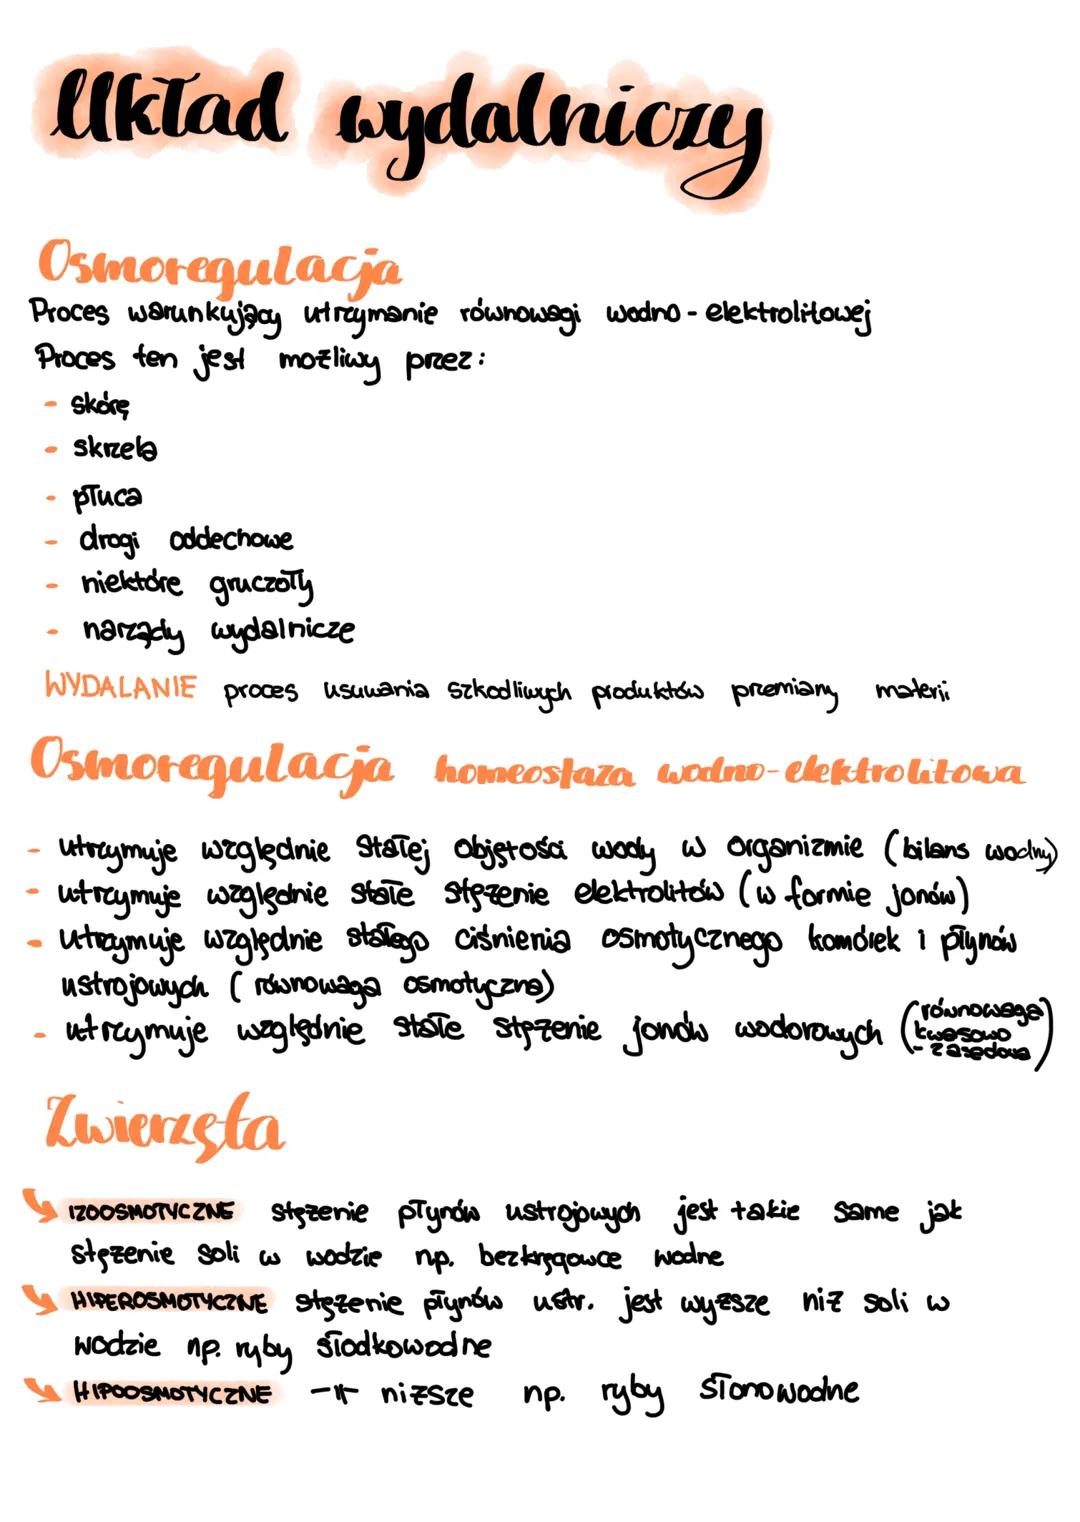 Układ wydalniczy
Osmoregulacja
Proces warunkujący utrzymanie równowagi wodno-elektrolitowej
Proces ten jest możliwy przez:
- skórę
- skrzela
- płuca
- drogi oddechowe
- niektóre gruczoły
- narządy wydalnicze
WYDALANIE proces usuwania szkodliwych produktów przemiany materii
Osmoregulacja homeostaza wodno-elektrolitowa
- utrzymuje względnie stałej objętości wody w organizmie (bilans wodny)
- utrzymuje względnie stałe stężenie elektrolitów (w formie jonów)
- utrzymuje względnie stałego ciśnienia osmotycznego komórek i płynów
ustrojowych (równowaga osmotyczna)
- utrzymuje względnie stałe stężenie jonów wodorowych (równowaga
kwasowo
- zasadowa)
Zwierzęta
IZOOSMOTYCZNE stężenie płynów ustrojowych jest takie same jak
stężenie soli w wodzie np. bezkręgowce wodne
HIPEROSMOTYCZNE stężenie płynów ustr. jest wyższe niż soli w
wodzie np. ryby słodkowodne
HIPOOSMOTYCZNE -||- niższe np. ryby słonowodne